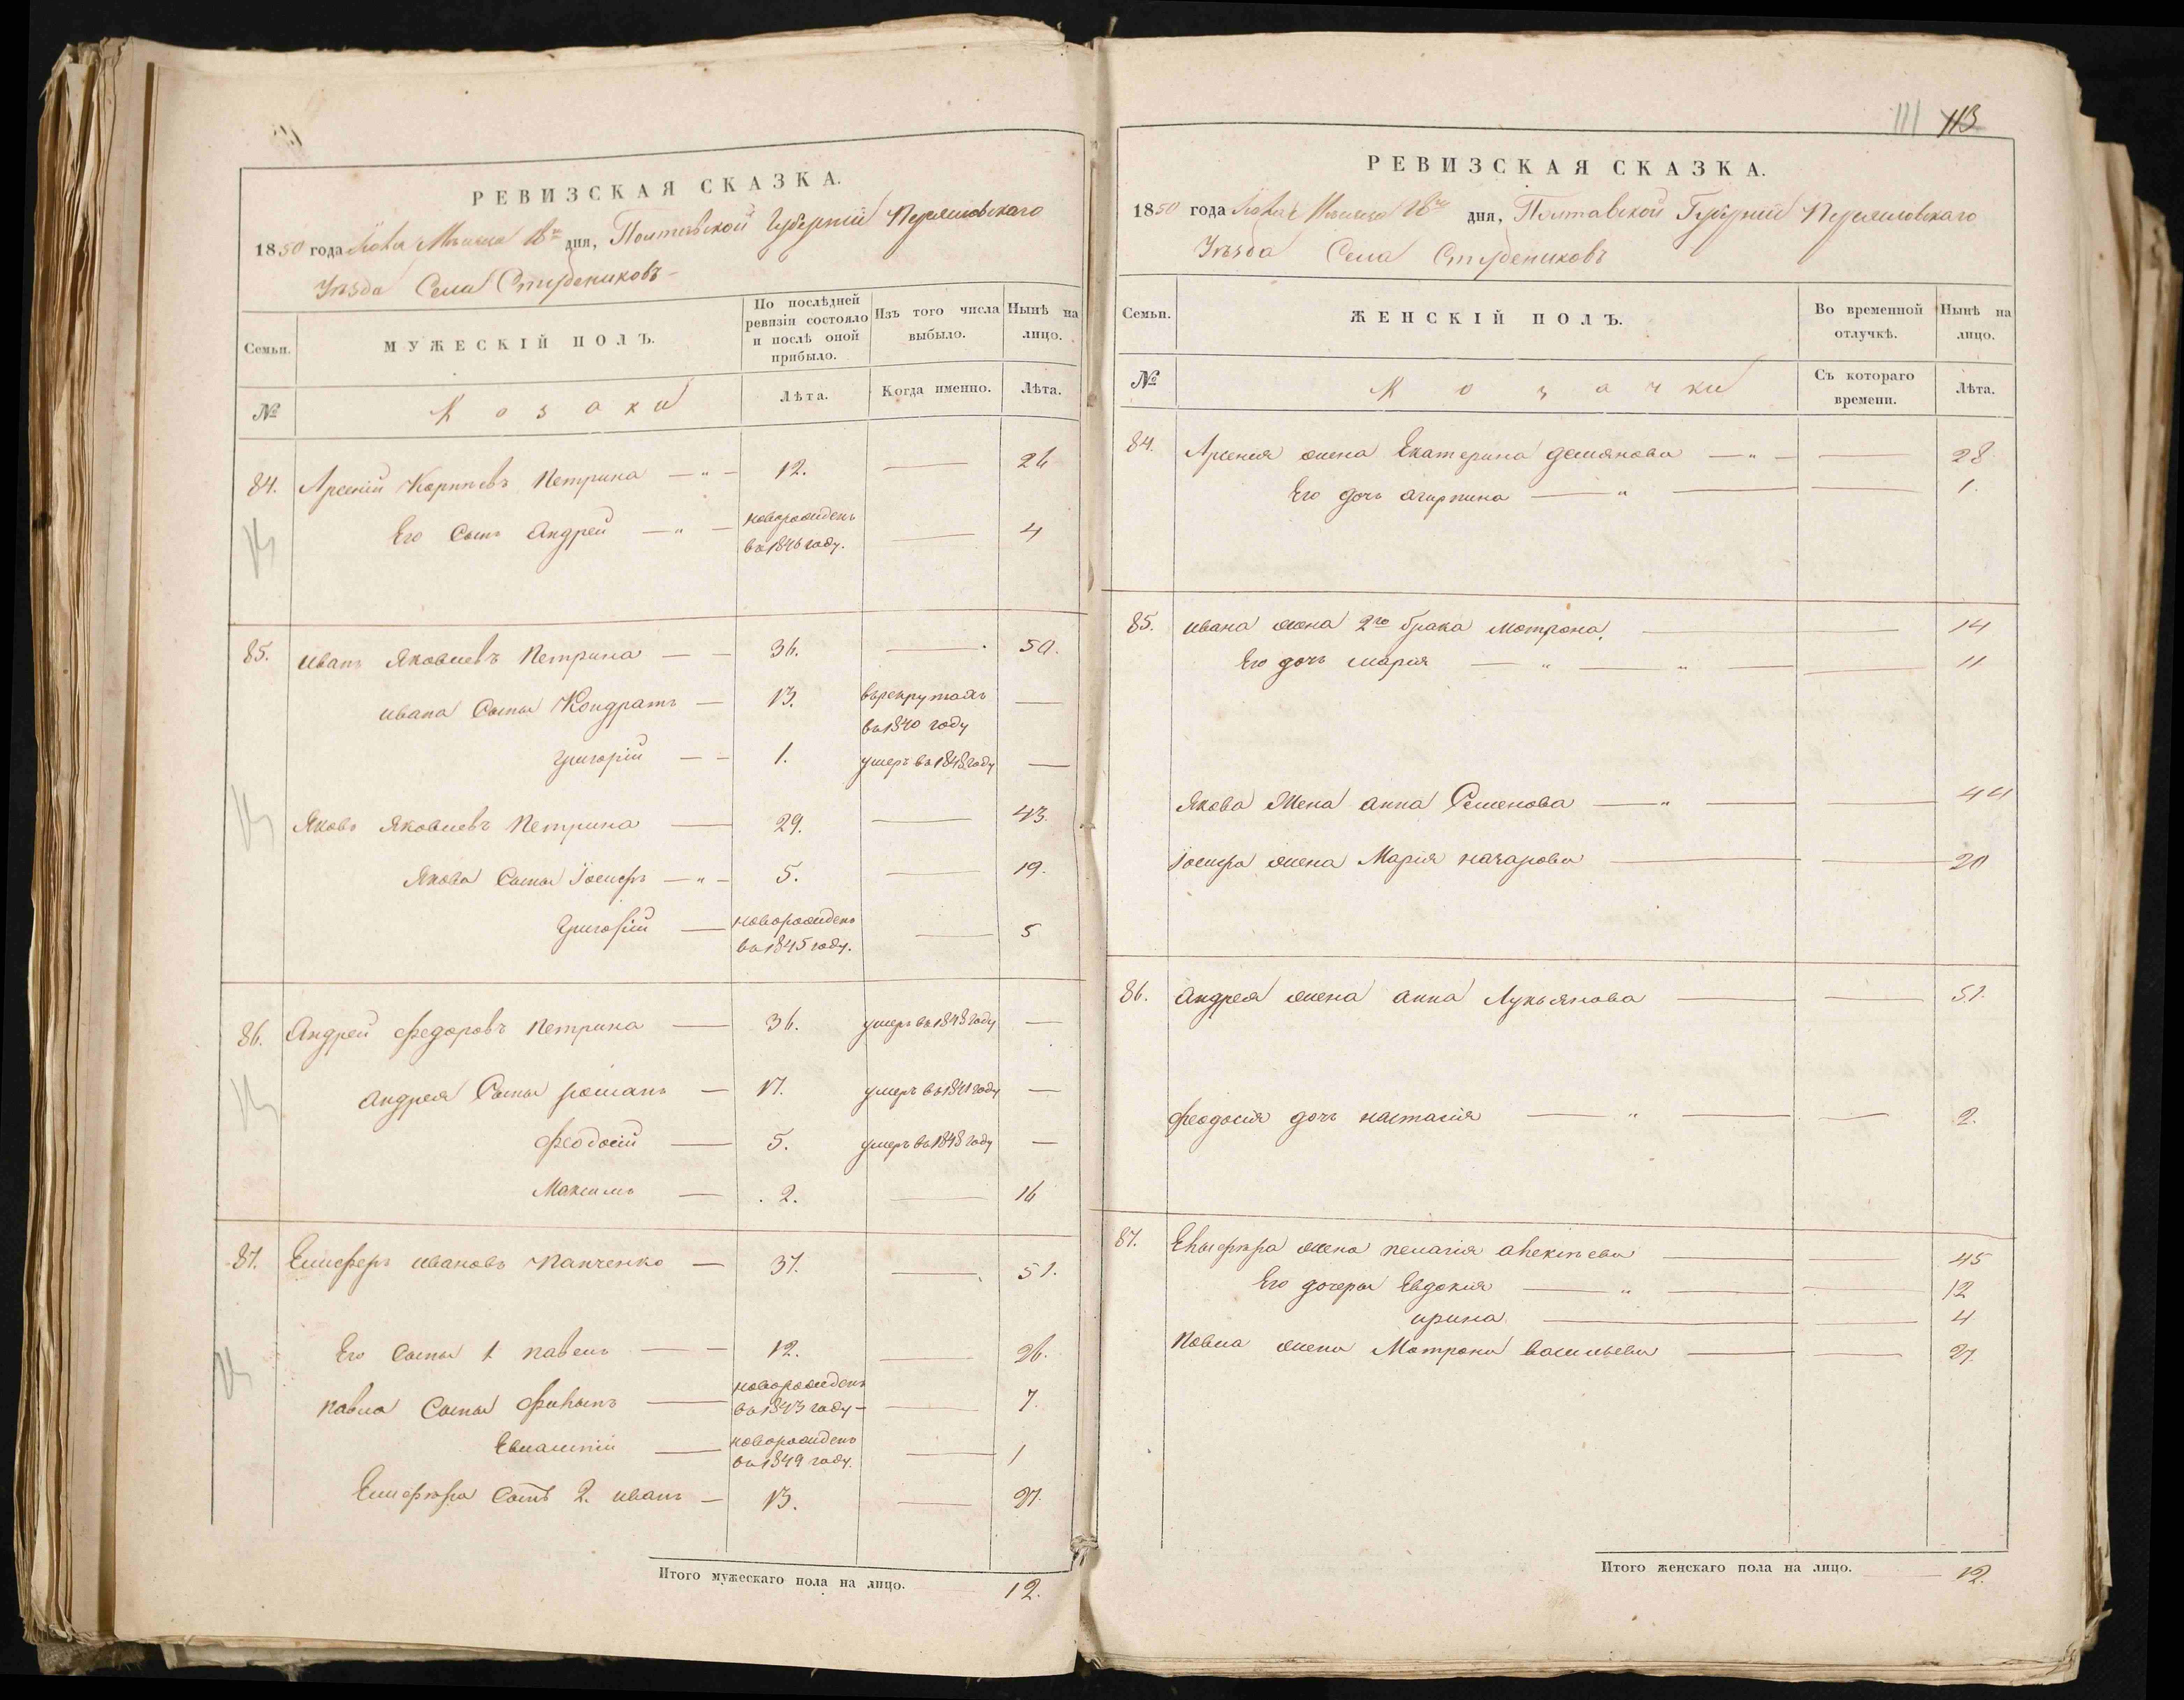 РЕВИЗСКАЯ СКАЗКА.
1850 года Мѣсяца 18го дня, Полтавской Губерніи Переяславскаго
Уѣзда Села Студениковъ
Семьи.
МУЖЕСКІЙ ПОЛЪ.
По послѣдней ревизіи состояло и послѣ оной прибыло.
Изъ того числа выбыло.
Нынѣ на лицо.
№
Козаки
Лѣта.
Когда именно.
Лѣта.
84. Арсеній Корнѣевъ Петрина — „ — 12. — 26
Его Сынъ Андрей — „ — новорожденъ въ 1846 году. — 4
85. Иванъ Яковлевъ Петрина — — 36. — 50.
Ивана Сыны Кондратъ — 13. въ рекрутахъ въ 1840 году —
Григорій — — 1. умеръ въ 1848 году —
Яковъ Яковлевъ Петрина — 29. — 43.
Якова Сыны Іосифъ — „ — 5. — 19.
Григорій — новорожденъ въ 1845 году. — 5
86. Андрей Федоровъ Петрина — 36. умеръ въ 1848 году —
Андрея Сыны Романъ — 17. умеръ въ 1841 году —
Феодосій — 5. умеръ въ 1848 году —
Максимъ — 2. — 16
87. Елисферъ Ивановъ Панченко — 37. — 51.
Его Сыны 1. Павелъ — — 12. — 26.
Павла Сыны Филипъ — новорожденъ въ 1843 году — — 7.
Евлампій — новорожденъ въ 1849 году. — 1
Елисфера Сынъ 2. Иванъ — 13. — 27.
Итого мужескаго пола на лицо. 12.
111 113
РЕВИЗСКАЯ СКАЗКА.
1850 года Мѣсяца 18го дня, Полтавской Губерніи Переяславскаго
Уѣзда Села Студениковъ
Семьи.
ЖЕНСКІЙ ПОЛЪ.
Во временной отлучкѣ.
Нынѣ на лицо.
№
Козачки
Съ котораго времени.
Лѣта.
84. Арсенія жена Екатерина Демянова — „ — — 28.
Его дочь Агирпина — „ — — 1.
85. Ивана жена 2го брака Мотрона. — — 14
Его дочь Марія — „ — „ — — 11
Якова Жена Анна Семенова — „ — — 44
Іосифа жена Марія Назарова — — 20
86. Андрея жена Анна Лукьянова — — 51.
Феодосія дочь Настасія — „ — — 2.
87. Елисфера жена Пелагія Алексѣева — — 45
Его дочеры Евдокія — „ — — 12
Ирина. — — 4
Павла жена Мотрона Васильева — — 27.
Итого женскаго пола на лицо. — 12.